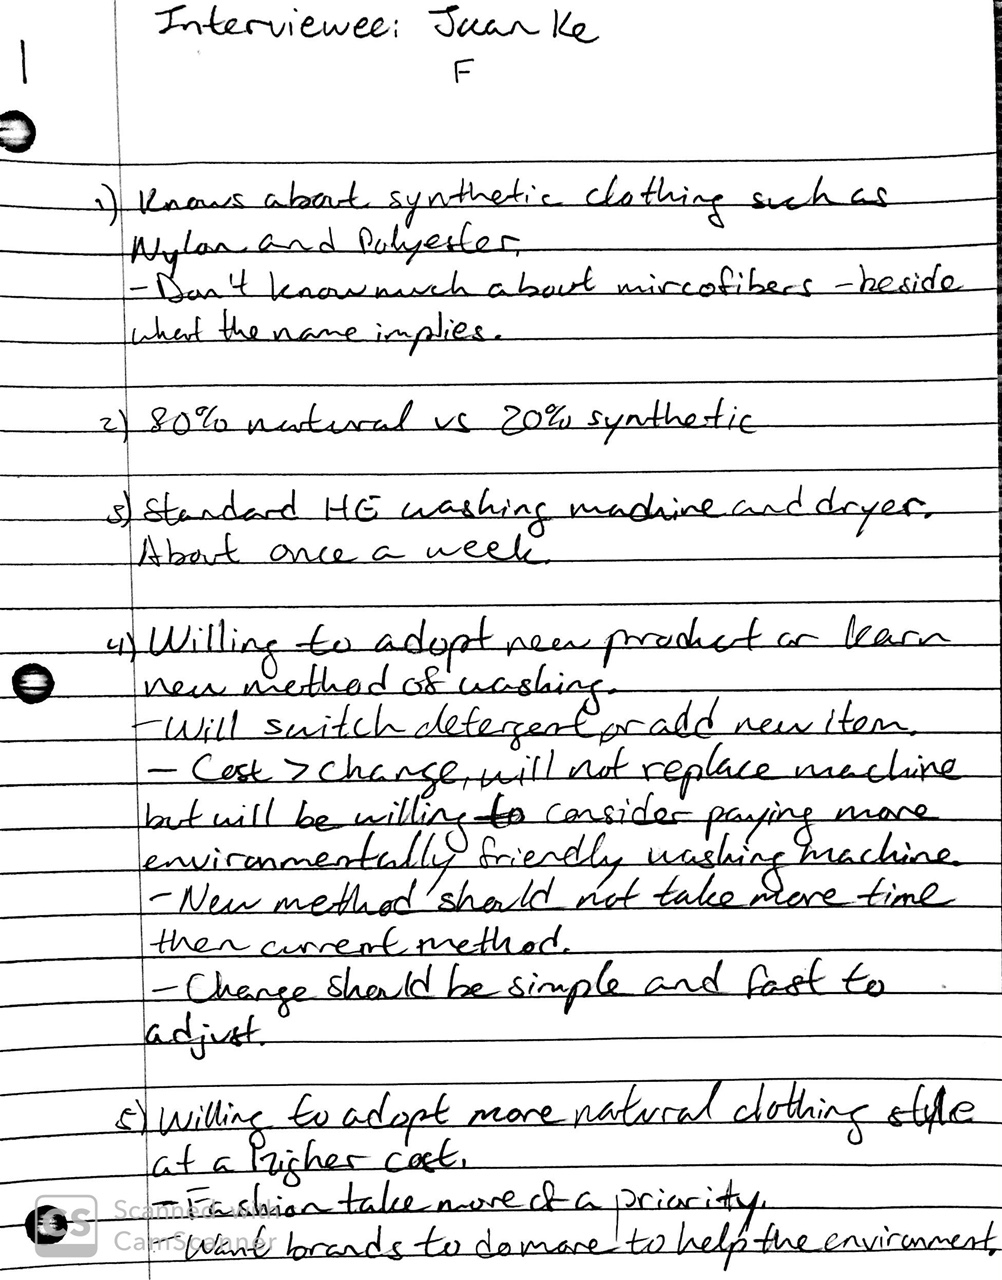 Interviewee: Juan Ke
F
1
1) Knows about synthetic clothing such as
Nylon and Polyester,
- Don't know much about mircofibers - beside
what the name implies.
2) 80% natural vs 20% synthetic
3) Standard HE washing machine and dryer.
About once a week.
4) Willing to adopt new product or learn
new method of washing.
- Will switch detergent or add new item.
- Cost > change, will not replace machine
but will be willing to consider paying more
environmentally friendly washing machine.
- New method should not take more time
then current method.
- Change should be simple and fast to
adjust.
5) Willing to adopt more natural clothing style
at a higher cost.
- Fashion take more of a priority.
- Want brands to do more to help the environment.
CS Scanned with
CamScanner